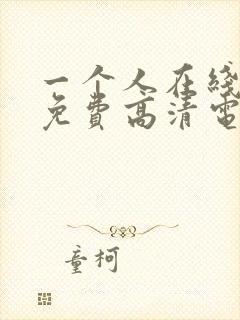 一个人在线
免费高清电
童柯